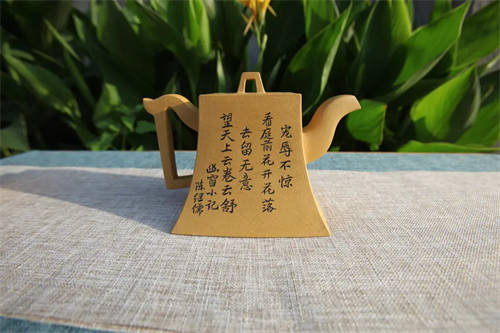 宠辱不惊
看庭前花开花落
去留无意
望天上云卷云舒
幽窗小记
陈继儒